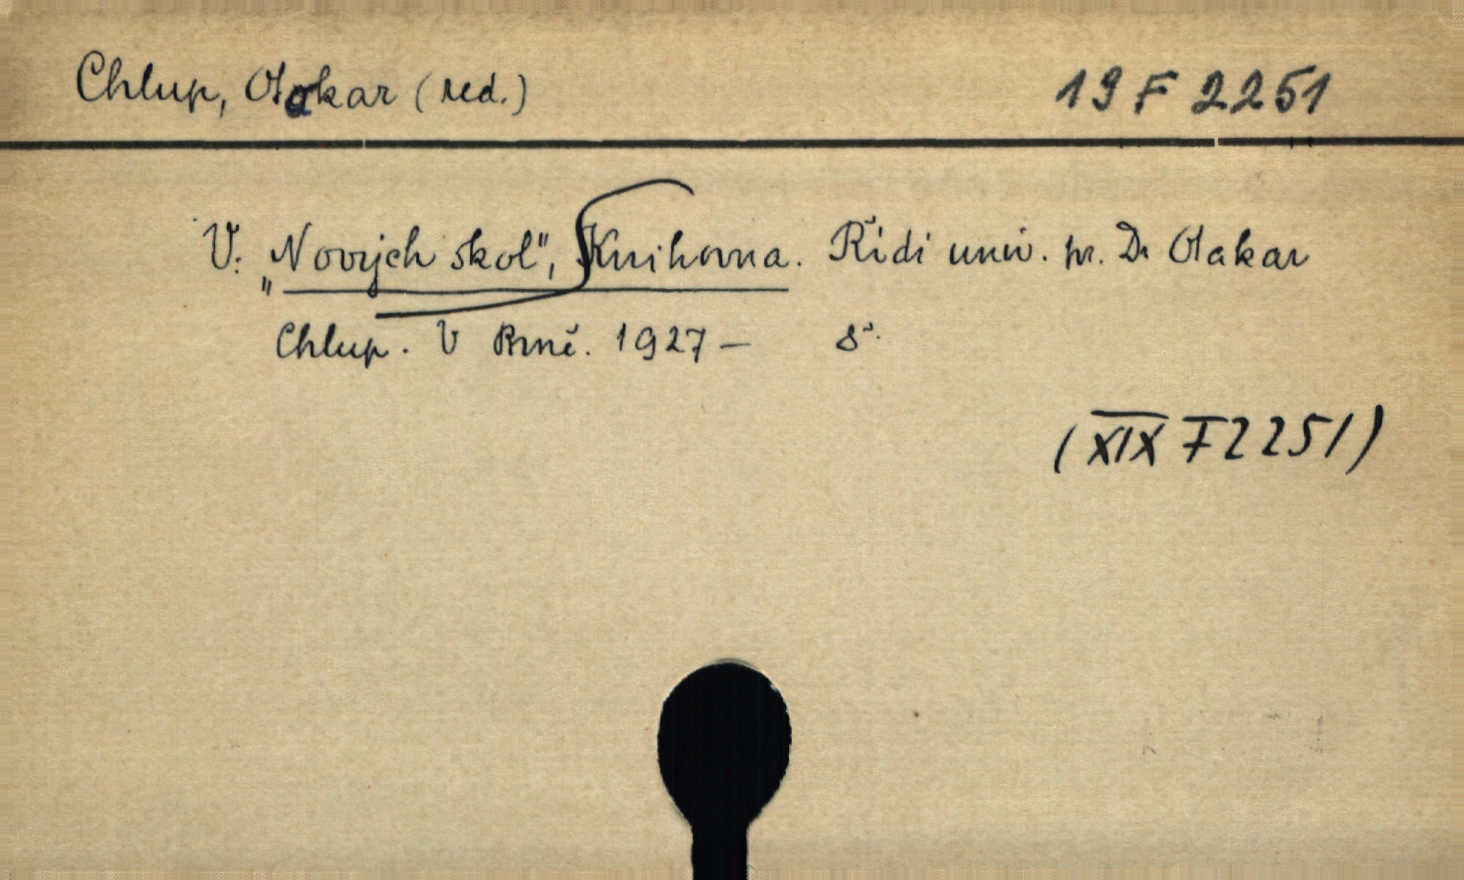 Chlup, Otakar (red.) 19 F 2251
V: „Nových skol", Knihovna. Řídi univ. pr. Dr Otakar
Chlup. V Brně. 1927 – 8°.
(XIX F 2251)